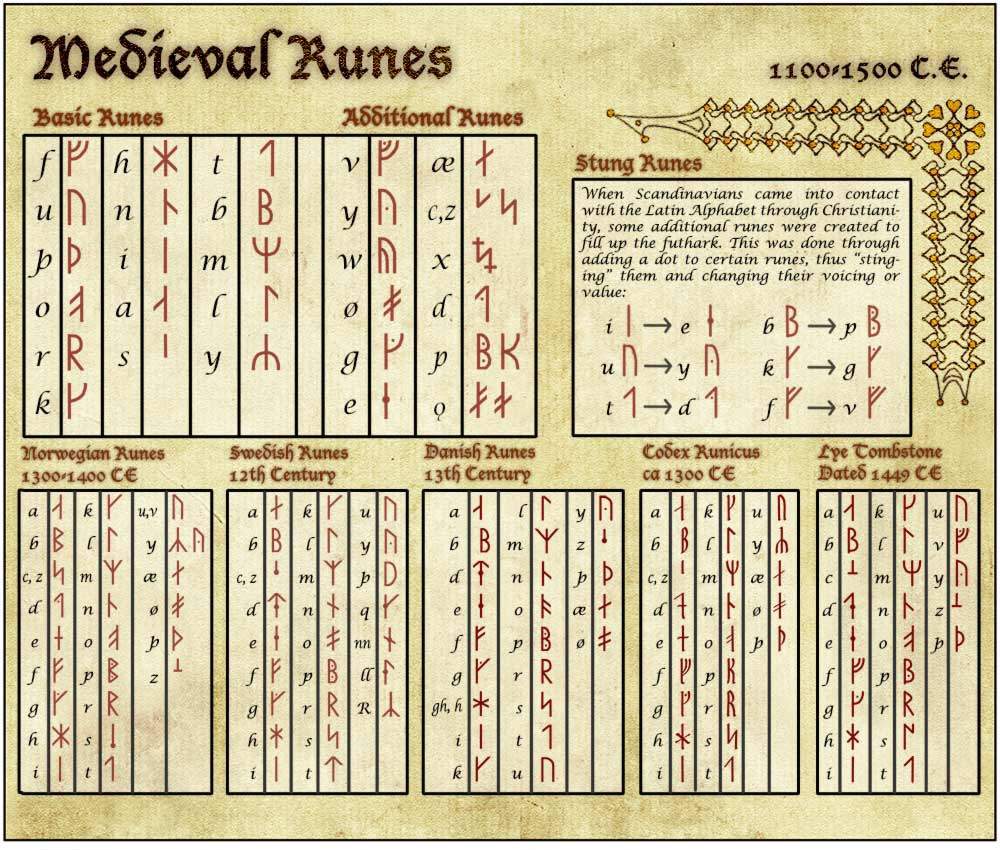 Medieval Runes
1100-1500 C.E.
Basic Runes
f ᚠ h ᚼ t ᛐ
u ᚢ n ᚿ b ᛒ
þ ᚦ i ᛁ m ᛘ
o ᚮ a ᛆ l ᛚ
r ᚱ s ᛌ y ᛦ
k ᚴ
Additional Runes
v ᚡ æ ᛅ
y ᚤ c,z ᛍ ᛋ
w ᚥ x
ø ᚯ d ᛑ
g ᚵ p ᛔ ᛕ
e ᛂ ǫ ᚯ ᚯ
Stung Runes
When Scandinavians came into contact
with the Latin Alphabet through Christiani-
ty, some additional runes were created to
fill up the futhark. This was done through
adding a dot to certain runes, thus "sting-
ing" them and changing their voicing or
value:
i ᛁ → e ᛂ b ᛒ → p ᛔ
u ᚢ → y ᚤ k ᚴ → g ᚵ
t ᛐ → d ᛑ f ᚠ → v ᚡ
Norwegian Runes
1300-1400 CE
a ᛆ k ᚴ u,v ᚢ
b ᛒ l ᛚ y ᛣ ᚤ
c, z ᛋ m ᛉ æ ᛅ
d ᛑ n ᚿ ø ᚯ
e ᛂ o ᚮ þ ᚦ
f ᚠ p ᛔ z
g ᚵ r ᚱ
h ᚼ s
i ᛁ t ᛐ
Swedish Runes
12th Century
a ᛅ k ᚴ u ᚢ
b ᛒ l ᛚ y ᚤ
c, z m ᛉ þ ᚦ
d n ᚾ q
e ᛂ o ᚯ nn
f ᚠ p ᛔ ll
g ᚵ r ᚱ R ᛣ
h ᚼ s ᛋ
i ᛁ t ᛏ
Danish Runes
13th Century
a ᛆ l ᛚ y ᚤ
b ᛒ m ᛉ z
d n ᚿ þ ᚦ
e ᛂ o ᚭ æ ᛅ
f ᚠ p ᛔ ø ᚯ
g ᚵ r ᚱ
gh, h ᚼ s ᛋ
i ᛁ t ᛐ
k ᚴ u ᚢ
Codex Runicus
ca 1300 CE
a ᛆ k ᚴ u ᚢ
b ᛒ l ᛚ y ᛦ
c, z m ᛘ æ ᛅ
d n ᚿ ø ᚯ
e o ᚮ þ ᚦ
f ᚠ p ᛕ
g ᚵ r ᚱ
h ᚼ s ᛋ
i ᛁ t ᛐ
Lye Tombstone
Dated 1449 CE
a ᛆ k ᚴ u ᚢ
b ᛒ l ᛚ v ᚡ
c m ᛘ y ᚤ
d ᛑ n ᚿ z
e ᛂ o ᚮ þ ᚦ
f ᚠ p ᛔ
g ᚵ r ᚱ
h ᚼ s
i ᛁ t ᛐ